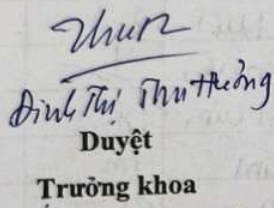 Đinh Thị Thu Hường
Duyệt
Trưởng khoa